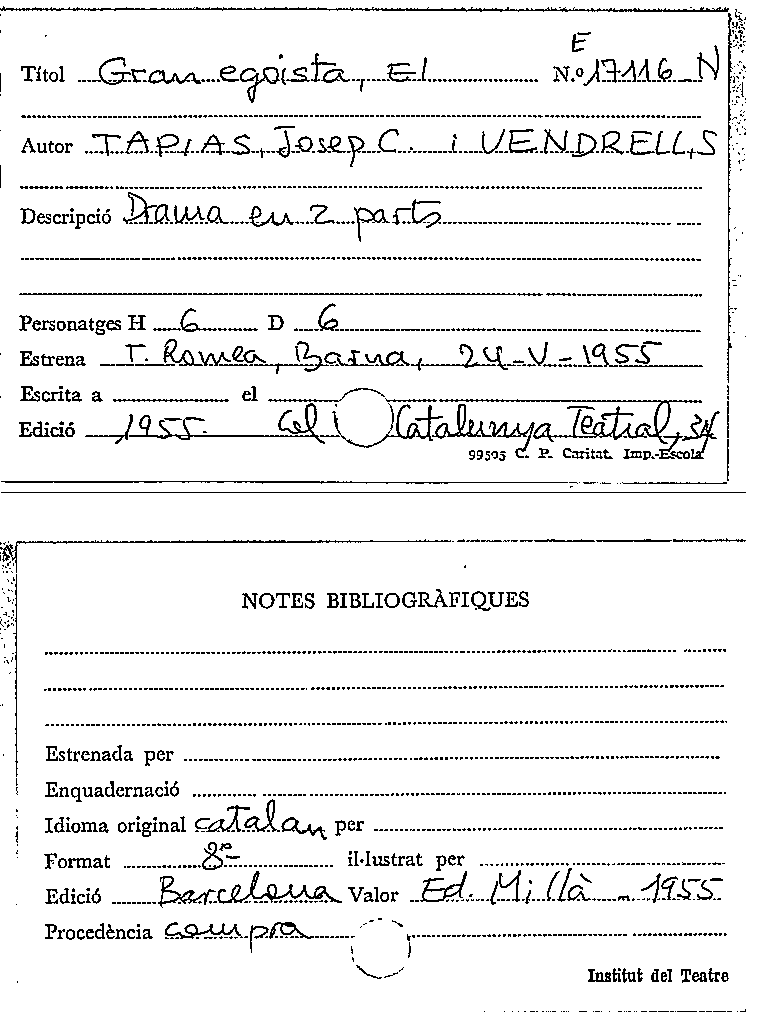 E
Títol Gran egoista, El N.º 17116 N
Autor TAPIAS, Josep C. i VENDRELL, S
Descripció Drama en 2 parts
Personatges H 6 D 6
Estrena T. Romea, Barna, 24-V-1955
Escrita a el
Edició 1955. Catalunya Teatral, 34
99505 C. P. Caritat. Imp.-Escola
NOTES BIBLIOGRÀFIQUES
Estrenada per
Enquadernació
Idioma original catalan per
Format 8º il·lustrat per
Edició Barcelona Valor Ed. Millà - 1955
Procedència compra
Institut del Teatre